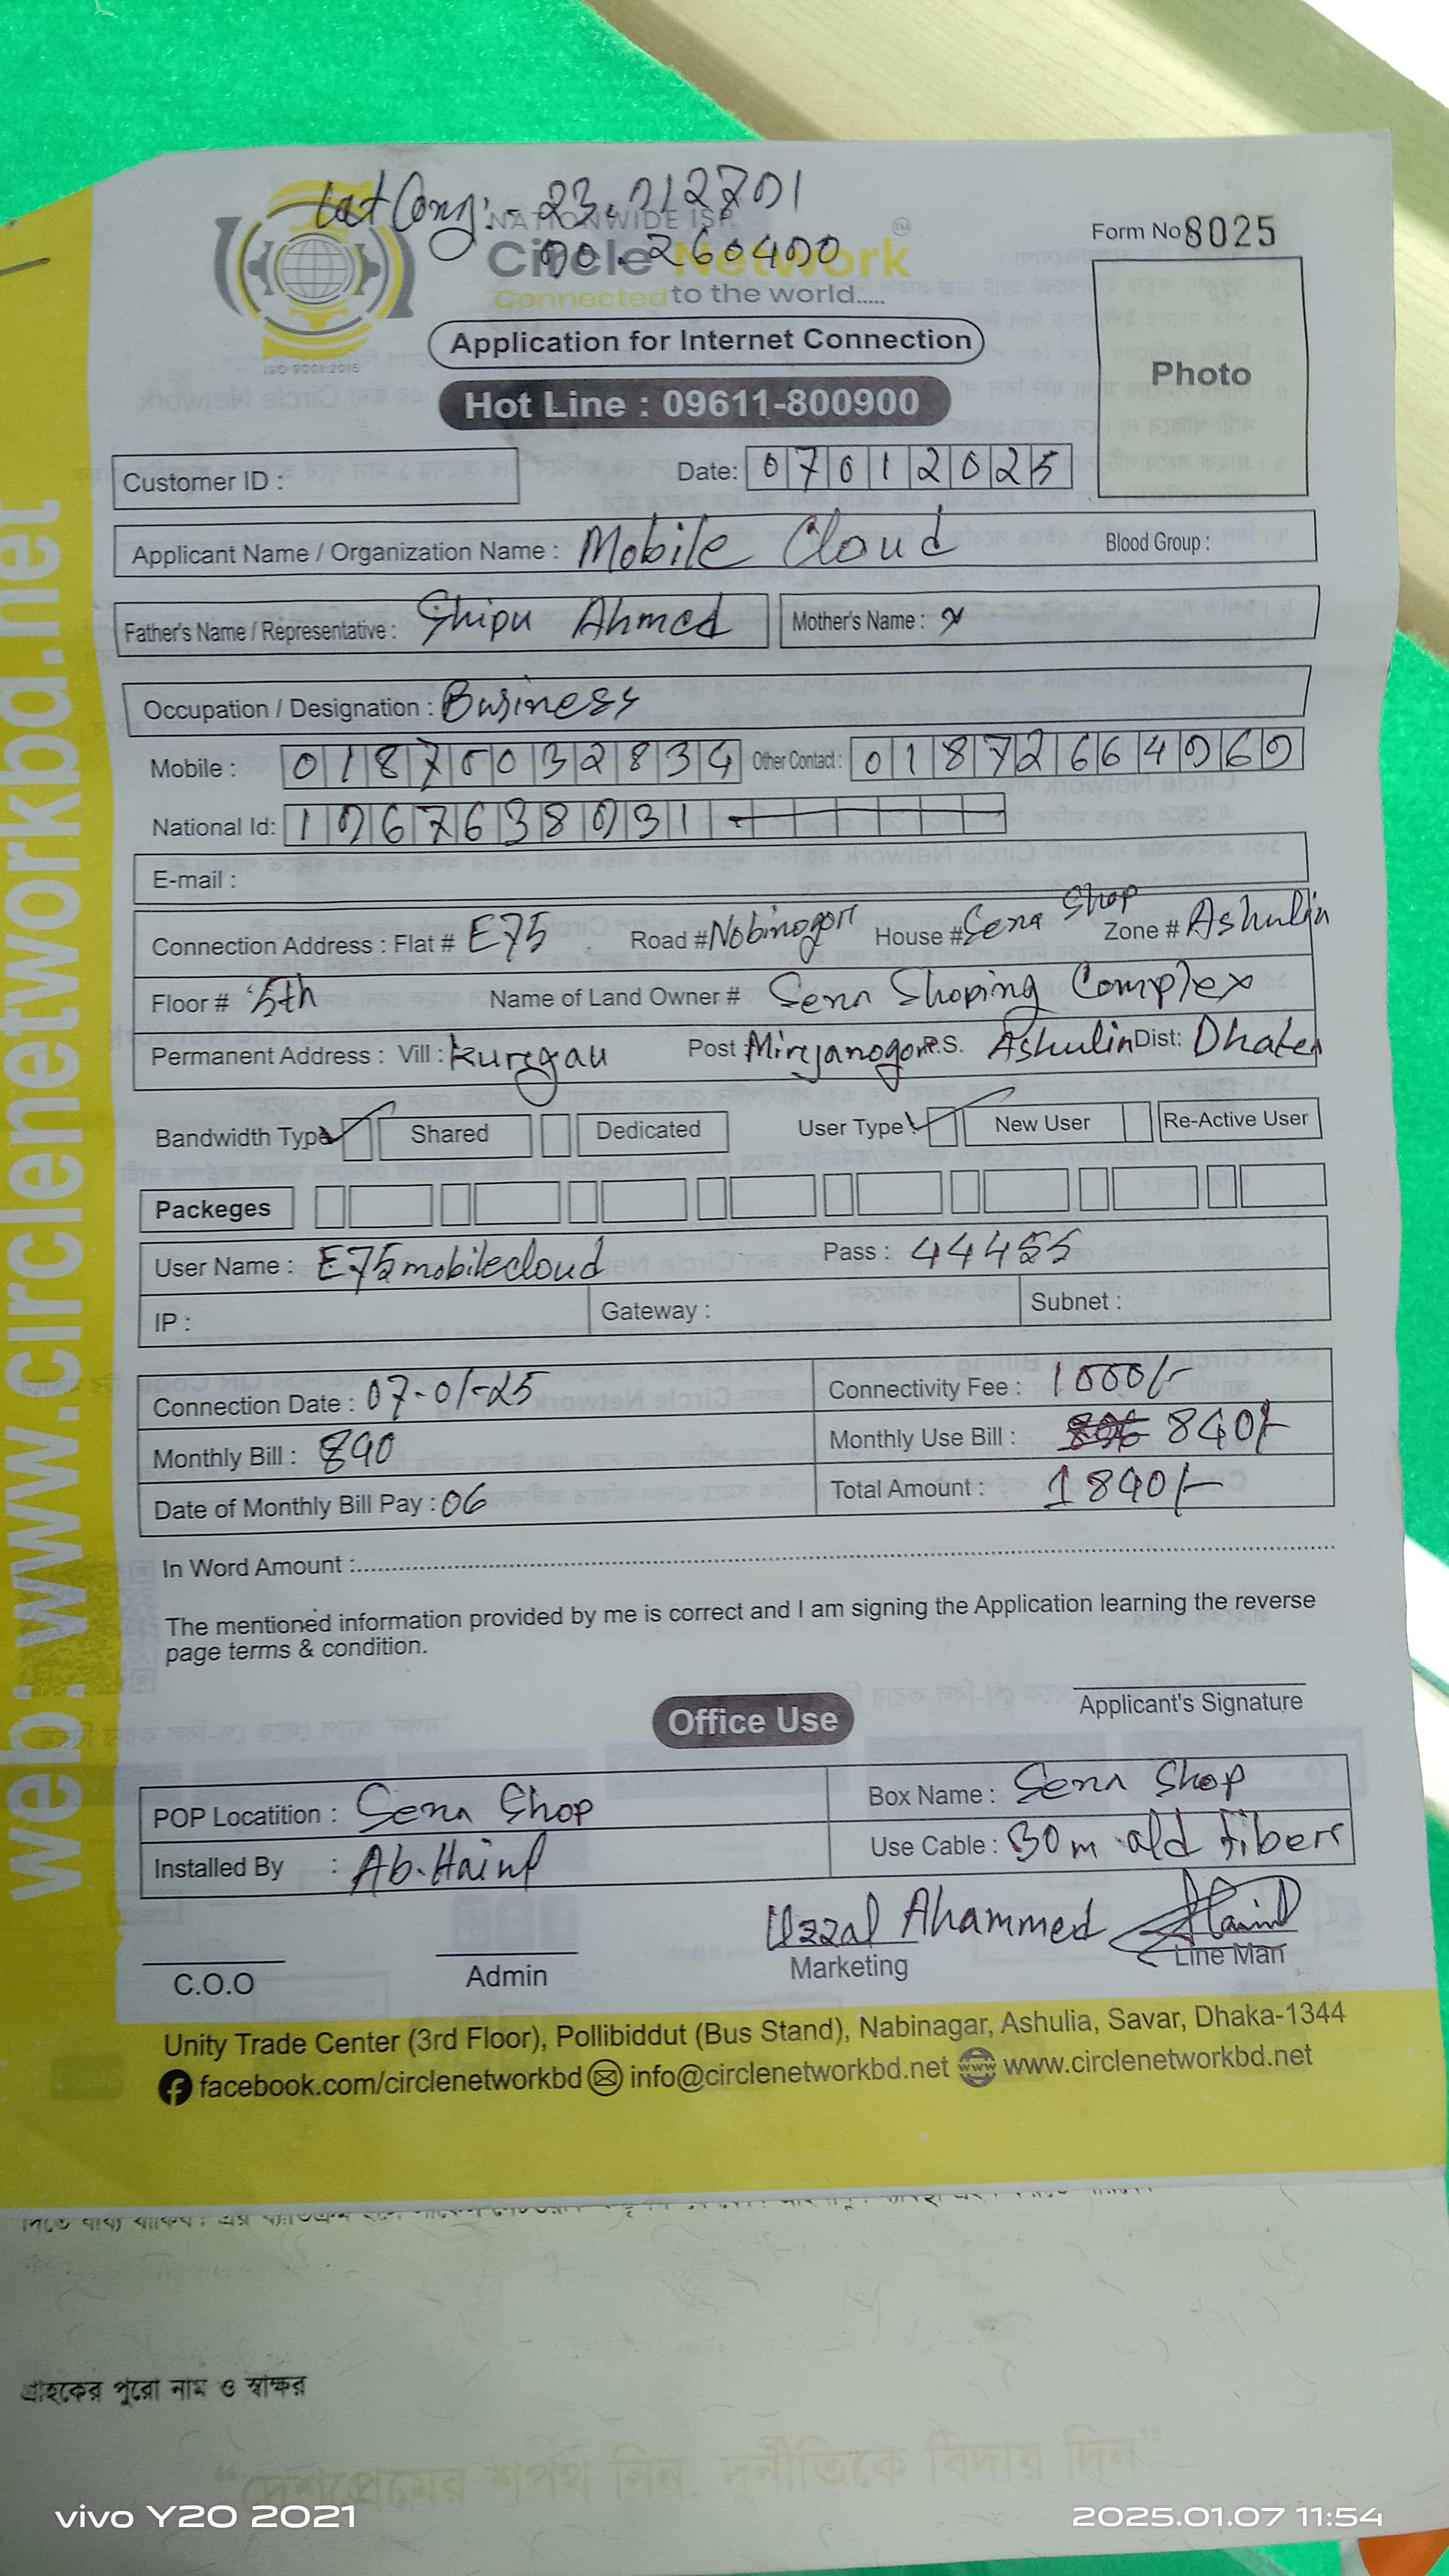 Lat Long:- 23.912701
90.260490
NATIONWIDE ISP
Circle Network
Connected to the world.....
ISO 9001:2015
Form No 8025
Photo
Application for Internet Connection
Hot Line : 09611-800900
Customer ID :
Date: 07012025
Applicant Name / Organization Name : Mobile Cloud Blood Group :
Father's Name / Representative : Shipu Ahmed Mother's Name :
Occupation / Designation : Business
Mobile : Other Contact : 01872664969
National Id:
E-mail :
Connection Address : Flat # E75 Road # Nobinogor House # Sena Shop Zone # Ashulia
Floor # 5th Name of Land Owner # Sena Shoping Complex
Permanent Address : Vill : Kurgau Post Mirjanogor P.S. Ashulia Dist: Dhaka
Bandwidth Type Shared Dedicated User Type New User Re-Active User
Packeges
User Name : E75mobilecloud Pass : 44455
IP : Gateway : Subnet :
Connection Date : 07-01-25 Connectivity Fee : 1000/-
Monthly Bill : 840 Monthly Use Bill : 840/-
Date of Monthly Bill Pay : 06 Total Amount : 1840/-
In Word Amount :
The mentioned information provided by me is correct and I am signing the Application learning the reverse
page terms & condition.
Applicant's Signature
Office Use
POP Locatition : Sena Shop Box Name : Sena Shop
Installed By : Ab. Use Cable : 30m old fiber
Uzzal Ahammed
C.O.O Admin Marketing Line Man
Unity Trade Center (3rd Floor), Pollibiddut (Bus Stand), Nabinagar, Ashulia, Savar, Dhaka-1344
facebook.com/circlenetworkbd info@circlenetworkbd.net www.circlenetworkbd.net
web: www.circlenetworkbd.net
গ্রাহকের পুরো নাম ও স্বাক্ষর
“দেশপ্রেমের শপথ নিন, দুর্নীতিকে বিদায় দিন”
vivo Y20 2021
2025.01.07 11:54